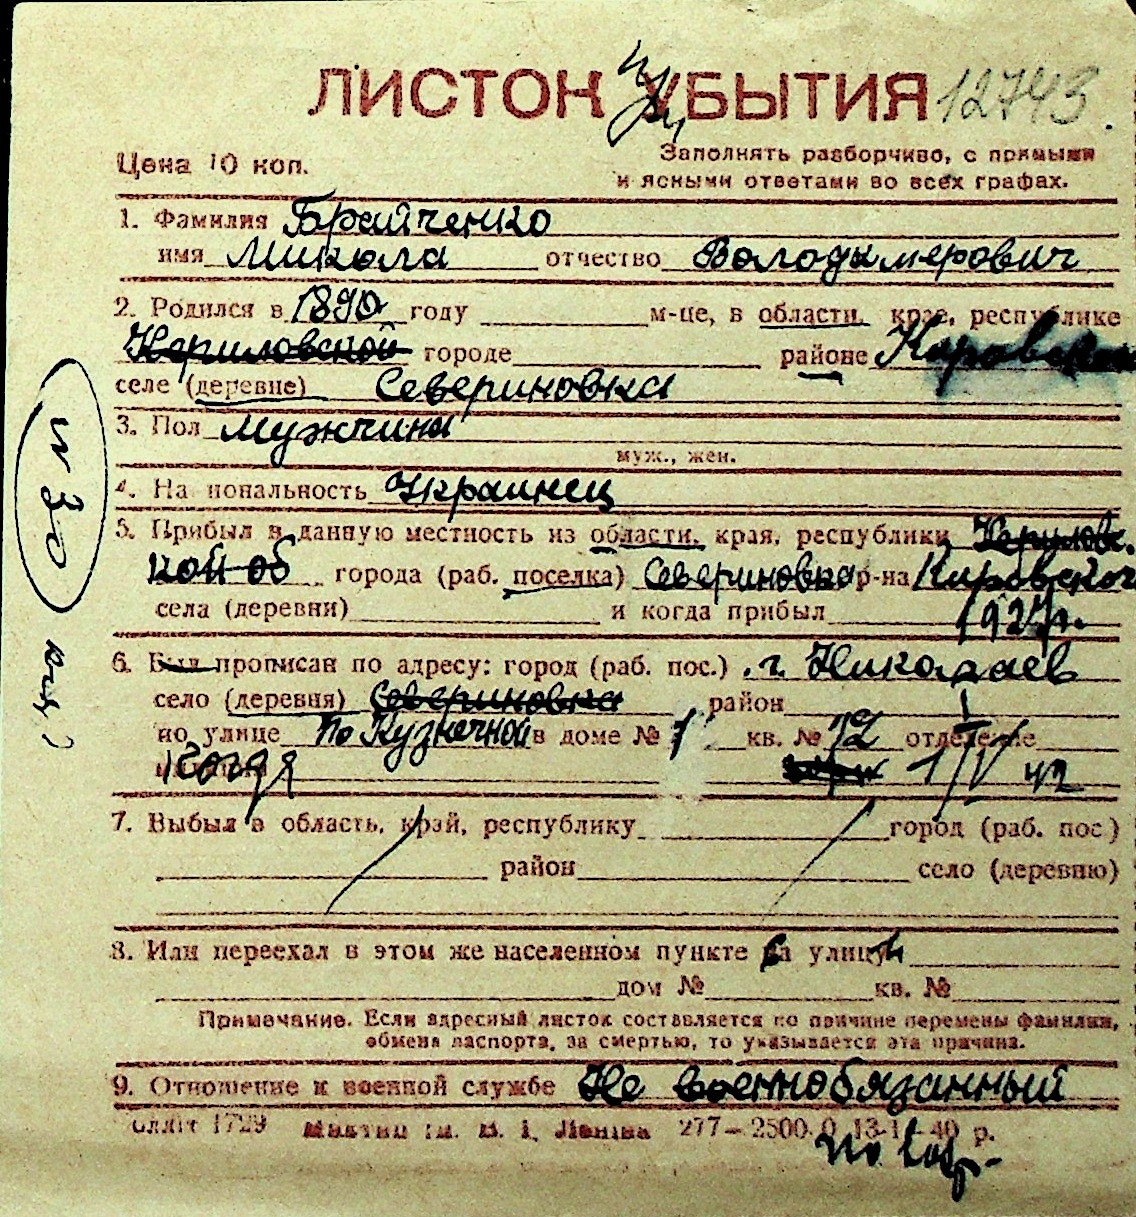 ЛИСТОК УБЫТИЯ 12743.
Цена 10 коп. Заполнять разборчиво, с прямыми
и ясными ответами во всех графах.
1. Фамилия Брайченко
имя Микола отчество Володымерович
2. Родился в 1890 году м-це, в области, крае, республике
городе районе Кировском
селе (деревне) Севериновка
3. Пол мужчина
муж., жен.
4. Национальность Украинец
5. Прибыл в данную местность из области, края, республики
кой об города (раб. поселка) Севериновка р-на Кировского
села (деревни) и когда прибыл 1927г.
6. Был прописан по адресу: город (раб. пос.) г. Николаев
село (деревня) Севериновка район
по улице по Кузнечной в доме № 1 кв. № 12 отделение
когда 1/IV 42
7. Выбыл в область, край, республику город (раб. пос.)
район село (деревню)
8. Или переехал в этом же населенном пункте на улицу
дом № кв. №
Примечание. Если адресный листок составляется по причине перемены фамилии,
обмена паспорта, за смертью, то указывается эта причина.
9. Отношение к военной службе Не военнообязанный
1729 им. В. І. Леніна 277—2500.0 13-1-40 р.
N 30